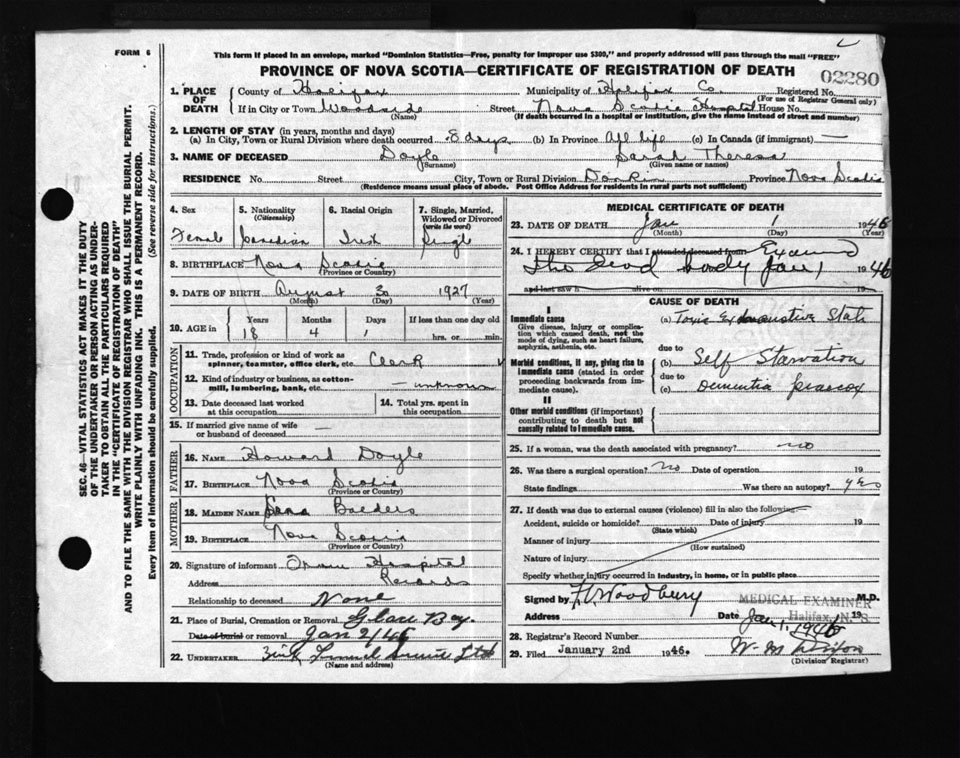 FORM 6
This form if placed in an envelope, marked "Dominion Statistics—Free, penalty for improper use $300," and properly addressed will pass through the mail "FREE"
PROVINCE OF NOVA SCOTIA—CERTIFICATE OF REGISTRATION OF DEATH
02280
1. PLACE OF DEATH
County of Halifax Municipality of Halifax Co. Registered No.
(For use of Registrar General only)
If in City or Town Woodside Street Nova Scotia Hospital House No.
(Name) (If death occurred in a hospital or institution, give the name instead of street and number)
2. LENGTH OF STAY (in years, months and days)
(a) In City, Town or Rural Division where death occurred 8 days (b) In Province All life (c) In Canada (if immigrant) —
3. NAME OF DECEASED Doyle Sarah Theresa
(Surname) (Given name or names)
RESIDENCE No. Street City, Town or Rural Division Donkin Province Nova Scotia
(Residence means usual place of abode. Post Office Address for residents in rural parts not sufficient)
4. Sex
Female
5. Nationality
(Citizenship)
Canadian
6. Racial Origin
Irish
7. Single, Married, Widowed or Divorced
(write the word)
Single
8. BIRTHPLACE Nova Scotia
(Province or Country)
9. DATE OF BIRTH August 30 1927
(Month) (Day) (Year)
10. AGE in
Years Months Days If less than one day old
18 4 1 hrs. or min.
OCCUPATION
11. Trade, profession or kind of work as spinner, teamster, office clerk, etc. Clerk
12. Kind of industry or business, as cotton-mill, lumbering, bank, etc. — unknown
13. Date deceased last worked at this occupation
14. Total yrs. spent in this occupation
15. If married give name of wife or husband of deceased —
FATHER
16. NAME Howard Doyle
17. BIRTHPLACE Nova Scotia
(Province or Country)
MOTHER
18. MAIDEN NAME
19. BIRTHPLACE Nova Scotia
(Province or Country)
20. Signature of informant Hospital
Address Records
Relationship to deceased None
21. Place of Burial, Cremation or Removal Glace Bay
Date of burial or removal Jan 2/46
22. UNDERTAKER Ltd
(Name and address)
MEDICAL CERTIFICATE OF DEATH
23. DATE OF DEATH Jan 1 1946
(Month) (Day) (Year)
24. I HEREBY CERTIFY that I attended deceased from Examined
the dead body Jan 1 1946
and last saw h alive on 19
CAUSE OF DEATH
I
Immediate cause
Give disease, injury or complication which caused death, not the mode of dying, such as heart failure, asphyxia, asthenia, etc.
(a) Toxic Exhaustive State
due to
Morbid conditions, if any, giving rise to immediate cause (stated in order proceeding backwards from immediate cause).
(b) Self Starvation
due to
(c) Dementia Praecox
II
Other morbid conditions (if important) contributing to death but not causally related to immediate cause.
25. If a woman, was the death associated with pregnancy? no
26. Was there a surgical operation? no Date of operation 19
State findings Was there an autopsy? yes
27. If death was due to external causes (violence) fill in also the following—
Accident, suicide or homicide? Date of injury 19
(State which)
Manner of injury
(How sustained)
Nature of injury
Specify whether injury occurred in industry, in home, or in public place
Signed by F. Woodbury M.D.
MEDICAL EXAMINER
Halifax, N. S.
Address Date Jan 1, 1946 19
28. Registrar's Record Number
29. Filed January 2nd 1946.
(Division Registrar)
SEC. 46—VITAL STATISTICS ACT MAKES IT THE DUTY
OF THE UNDERTAKER OR PERSON ACTING AS UNDER-
TAKER TO OBTAIN ALL THE PARTICULARS REQUIRED
IN THE "CERTIFICATE OF REGISTRATION OF DEATH"
AND TO FILE THE SAME WITH THE DIVISION REGISTRAR WHO SHALL ISSUE THE BURIAL PERMIT.
WRITE PLAINLY WITH UNFADING INK. THIS IS A PERMANENT RECORD.
Every item of information should be carefully supplied. (See reverse side for instructions.)